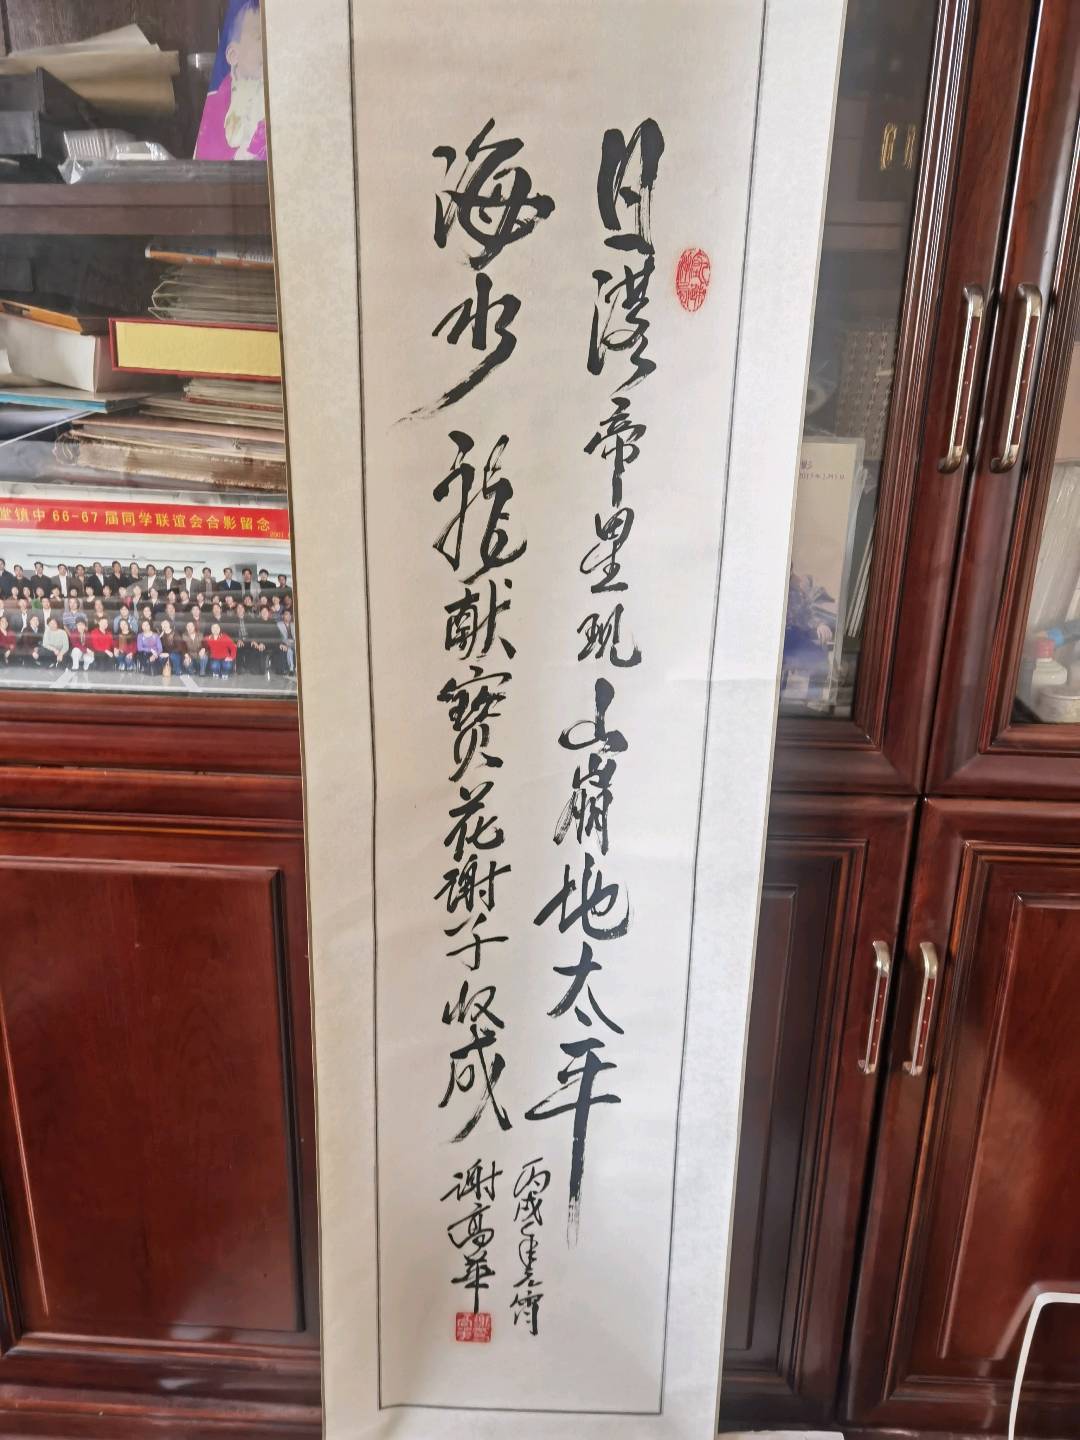 日落帝星现山崩地太平
海水龙献宝花谢子收成
丙戌年元宵
谢高华
堂镇中66-67届同学联谊会合影留念